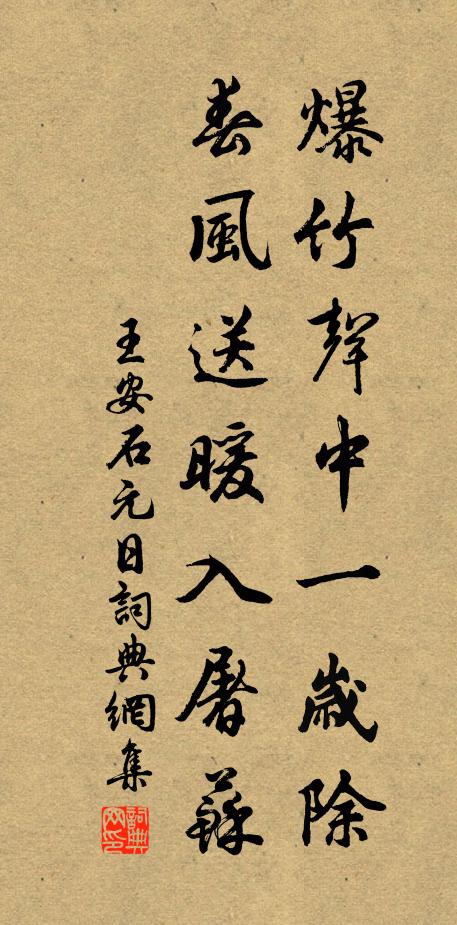 爆竹聲中一歲除
春風送暖入屠蘇
王安石元日詞典網集
詞典網印